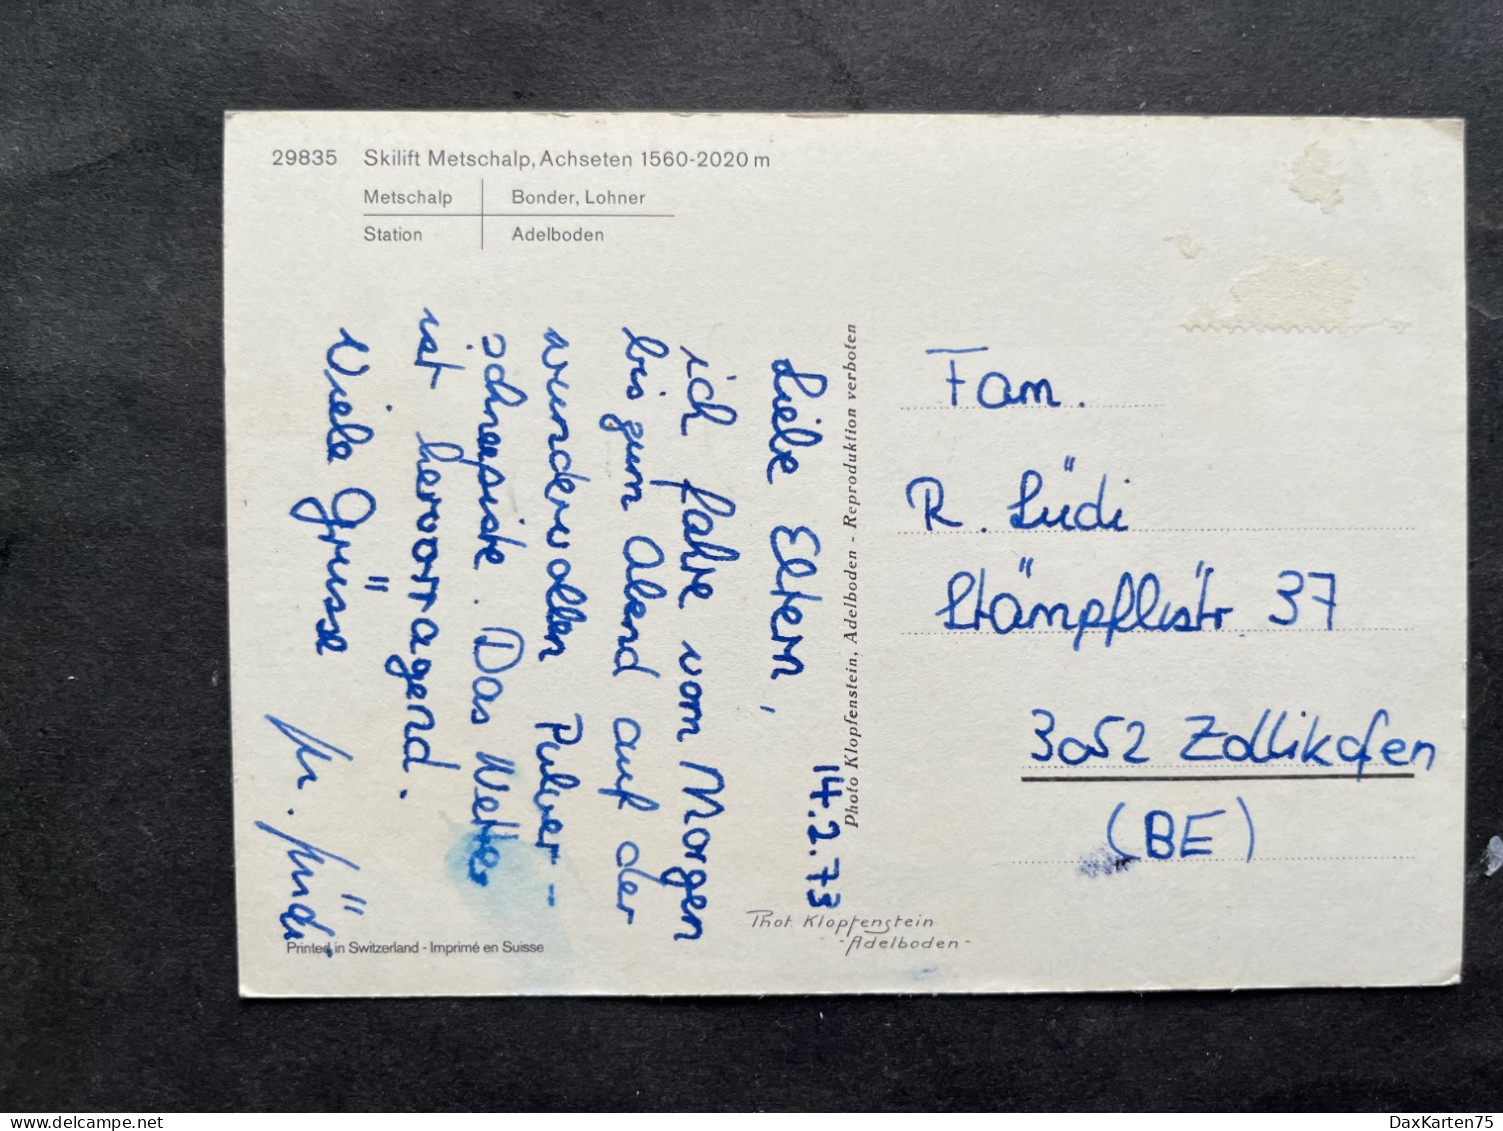 29835 Skilift Metschalp, Achseten 1560-2020 m
Metschalp Bonder, Lohner
Station Adelboden
14.2.73
Liebe Eltern,
ich fahre vom Morgen
bis zum Abend auf der
wundervollen Pulver-
schneepiste. Das Wetter
ist hervorragend.
Viele Grüsse
Photo Klopfenstein, Adelboden - Reproduktion verboten
Fam.
R. Lüdi
Stämpflistr. 37
3052 Zollikofen
(BE)
Phot. Klopfenstein
-Adelboden-
Printed in Switzerland - Imprimé en Suisse
DaxKarten75